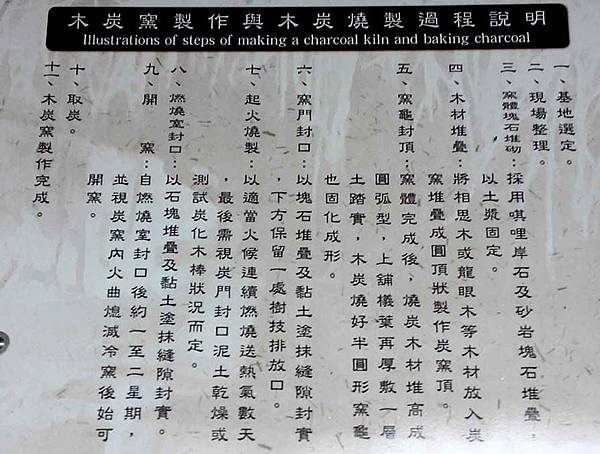 木炭窯製作與木炭燒製過程說明
Illustrations of steps of making a charcoal kiln and baking charcoal
一、基地選定。
二、現場整理。
三、窯體塊石堆砌：採用唭哩岸石及砂岩塊石堆疊，
以土漿固定。
四、木材堆疊：將相思木或龍眼木等木材放入炭
窯堆疊成圓頂狀製作炭窯頂。
五、窯龜封頂：窯體完成後，燒炭木材堆高成
圓弧型，上舖檨葉再厚敷一層
土踏實，木炭燒好半圓形窯龜
也固化成形。
六、窯門封口：以塊石堆疊及黏土塗抹縫隙封實
，下方保留一處樹技排放口。
七、起火燒製：以適當火候連續燃燒送熱氣數天
，最後需視炭門封口泥土乾燥或
測試炭化木棒狀況而定。
八、燃燒室封口：以石塊堆疊及黏土塗抹縫隙封實。
九、開　　窯：自燃燒室封口後約一至二星期，
並視炭窯內火曲熄滅冷窯後始可
開窯。
十、取炭。
十一、木炭窯製作完成。